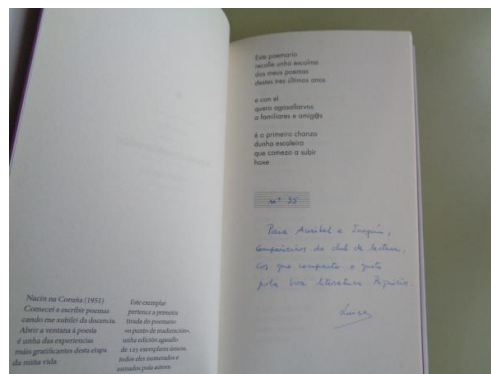 Nacín na Coruña (1951)
Comecei a escribir poemas
cando me xubilei da docencia
Abrir a ventana á poesía
é unha das experiencias
máis gratificantes desta etapa
da miña vida
Este exemplar
pertence á primeira
tirada do poemario
«o punto de maduración»,
unha edición agasallo
de 125 exemplares únicos
todos eles numerados e
asinados pola autora
Este poemario
recolle unha escolma
dos meus poemas
destes tres últimos anos
e con el
quero agasallarvos
a familiares e amig@s
é o primeiro chanzo
dunha escaleira
que comezo a subir
hoxe
nº 35
Para Maribel e Joaquín,
compañeiros do club de lectura,
cos que comparto o gusto
pola boa literatura.